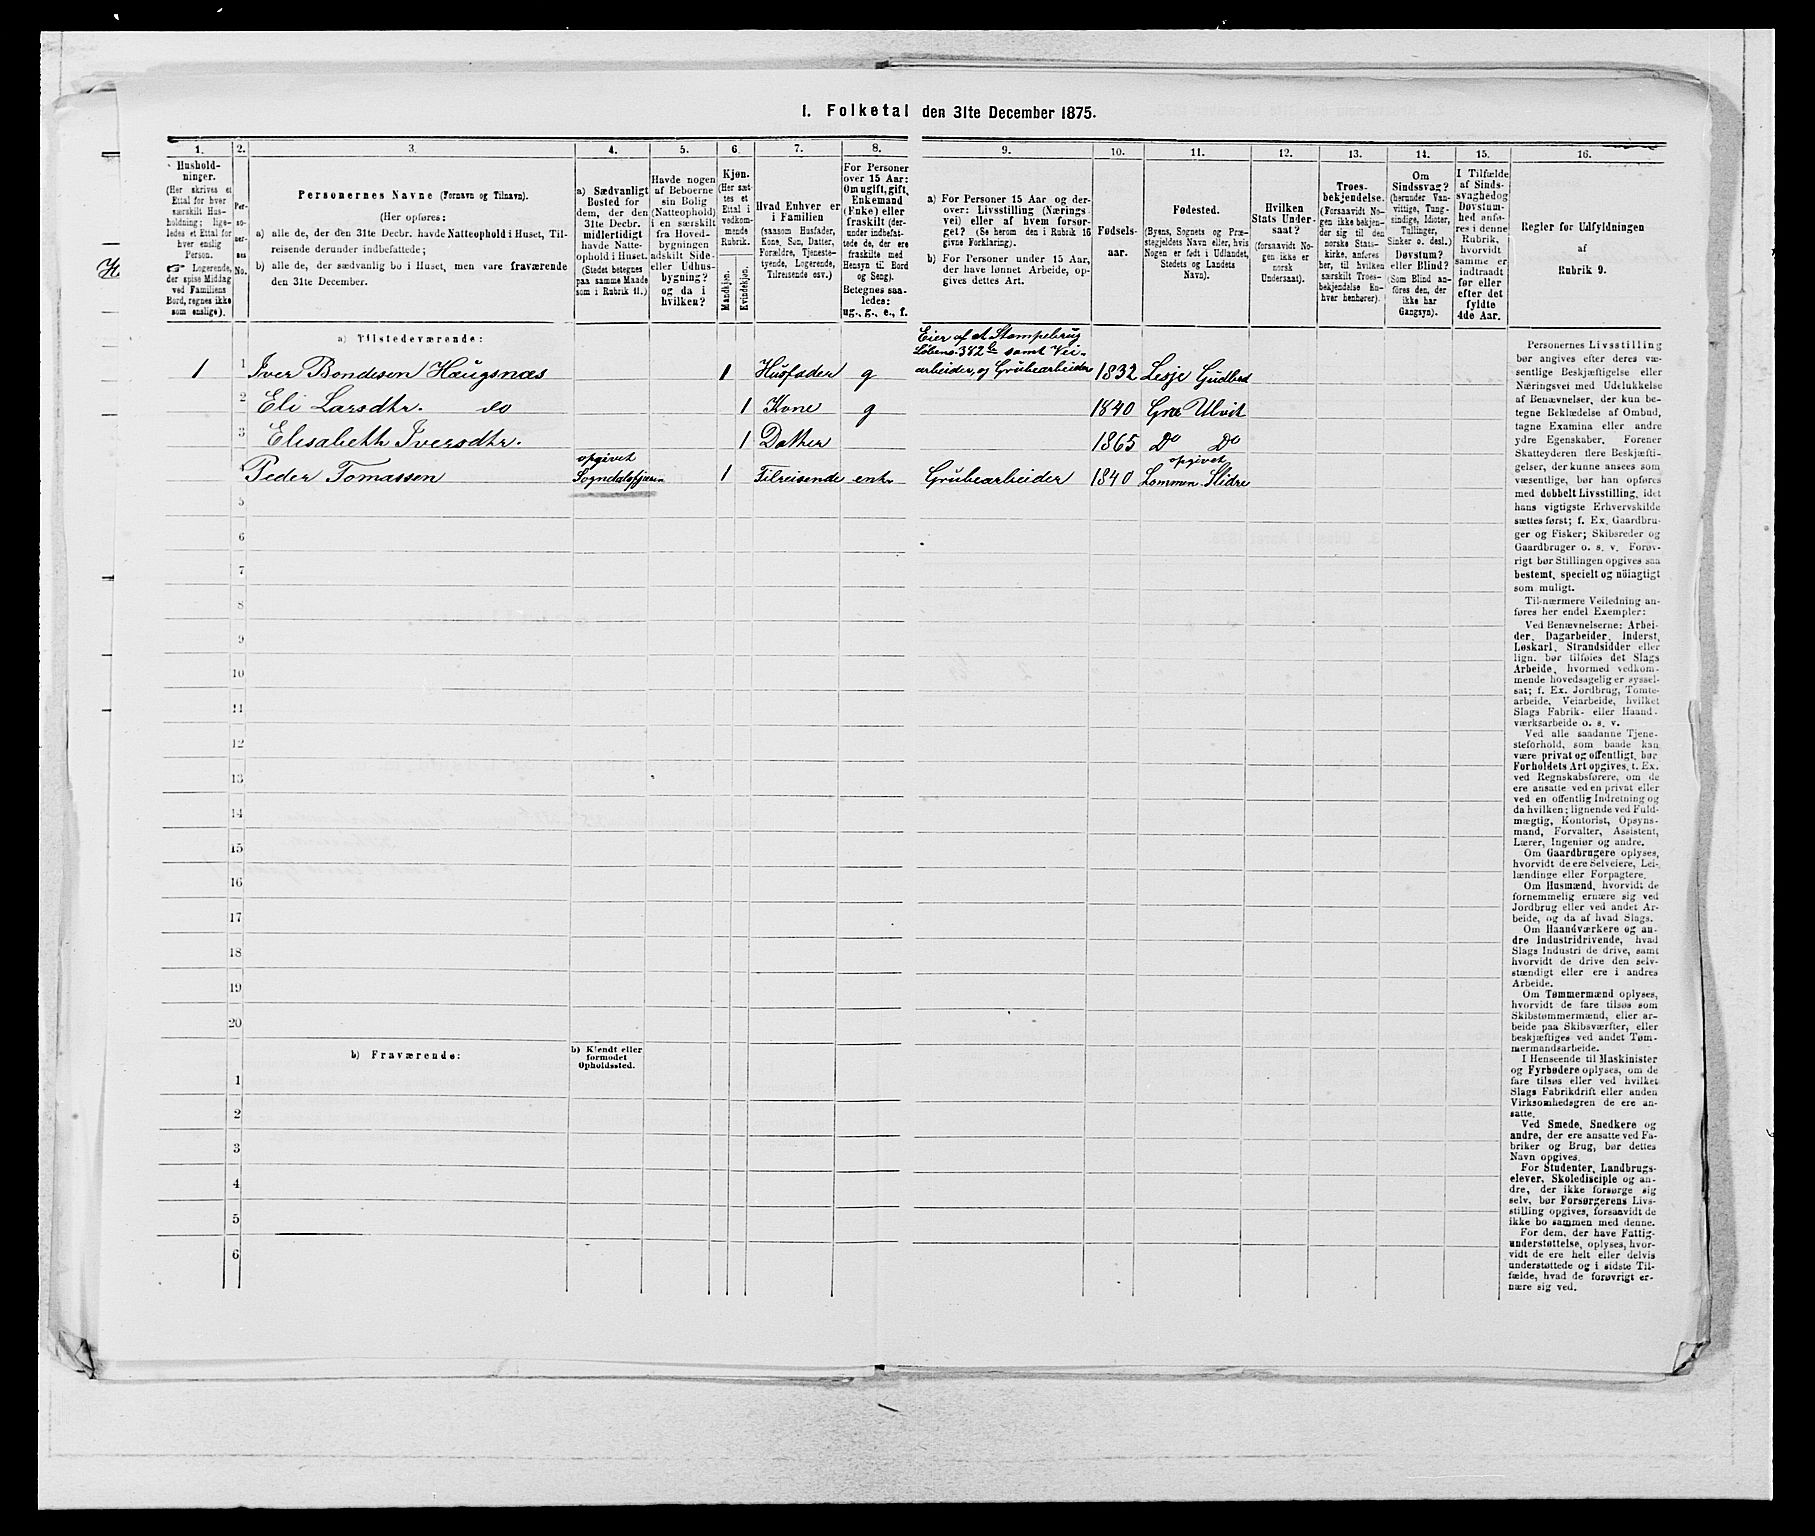 I. Folketal den 31te December 1875.
1.
2.
3.
4.
5.
6.
7.
8.
9.
10.
11.
12.
13.
14.
15.
16.
Hushold-
ninger.
(Her skrives et
Ettal for hver
særskilt Hus-
holdning; lige-
ledes et Ettal for
hver enslig
Person.
☞ Logerende,
der spise Middag
ved Familiens
Bord, regnes ikke
som enslige).
Per-
so-
ner-
nes
No.
Personernes Navne (Fornavn og Tilnavn).
(Her opføres:
a) alle de, der den 31te Decbr. havde Natteophold i Huset, Til-
reisende derunder indbefattede;
b) alle de, der sædvanlig bo i Huset, men vare fraværende
den 31te December.
a) Sædvanligt
Bosted for
dem, der den
31te Decbr.
midlertidigt
havde Natte-
ophold i Huset.
(Stedet betegnes
paa samme Maade
som i Rubrik 11.)
Havde nogen
af Beboerne
sin Bolig
(Natteophold)
i en særskilt
fra Hoved-
bygningen
adskilt Side-
eller Udhus-
bygning?
og da i
hvilken?
Kjøn.
(Her sæt-
tes et
Ettal i
vedkom-
mende
Rubrik.
Mandkjøn.
Kvindekjøn.
Hvad Enhver er
i Familien
(saasom Husfader,
Kone, Søn, Datter,
Forældre, Tjeneste-
tyende, Logerende,
Tilreisende osv.)
For Personer
over 15 Aar:
Om ugift, gift,
Enkemand
(Enke) eller
fraskilt (der-
under indbefat-
tede de, der ere
fraskilte med
Hensyn til Bord
og Seng).
Betegnes saa-
ledes:
ug., g., e., f.
a) For Personer 15 Aar og der-
over: Livsstilling (Nærings-
vei) eller af hvem forsør-
get? (Se herom den i Rubrik 16
givne Forklaring).
b) For Personer under 15 Aar,
der have lønnet Arbeide, op-
gives dettes Art.
Fødsels-
aar.
Fødested.
(Byens, Sognets og Præ-
stegjeldets Navn eller, hvis
Nogen er født i Udlandet,
Stedets og Landets
Navn).
Hvilken
Stats Under-
saat?
(forsaavidt No-
gen ikke er
norsk
Undersaat).
Troes-
bekjendelse.
(Forsaavidt No-
gen ikke bekjen-
der sig til den
norske Stats-
kirke, anføres
her, til hvilken
særskilt Troes-
bekjendelse En-
hver henhører).
Om
Sindssvag?
(herunder Van-
vittige, Tung-
sindige, Idioter,
Tullinger,
Sinker o. desl.)
Døvstum?
eller Blind?
(Som Blind an-
føres den, der
ikke har
Gangsyn).
I Tilfælde
af Sinds-
svaghed og
Døvstum-
hed anfø-
res i denne
Rubrik,
hvorvidt
samme er
indtraadt
før eller
efter det
fyldte
4de Aar.
Regler for Udfyldningen
af
Rubrik 9.
a) Tilstedeværende:
Eier af et Stampebrug
Løbeno. 382b samt Vei-
1 1 Iver Bondesen Haugsnæs 1 Husfader g arbeider, og Grubearbeider 1832 Lesje Gudbrd
2 Eli Larsdtr. do 1 Kone g 1840 Ulvik
3 Elisabeth Iversdtr. 1 Datter 1865 Do Do
opgivet opgivet
4 Peder Tomassen Sogndalsfjæren 1 Tilreisende enkr Grubearbeider 1840 Lommen Slidre
5
6
7
8
9
10
11
12
13
14
15
16
17
18
19
20
b) Fraværende:
b) Kjendt eller
formodet
Opholdssted.
1
2
3
4
5
6
Personernes Livsstilling
bør angives efter deres væ-
sentlige Beskjæftigelse eller
Næringsvei med Udelukkelse
af Benævnelser, der kun be-
tegne Beklædelse af Ombud,
tagne Examina eller andre
ydre Egenskaber. Forener
Skatteyderen flere Beskjæfti-
gelser, der kunne ansees som
væsentlige, bør han opføres
med dobbelt Livsstilling, idet
hans vigtigste Erhvervskilde
sættes først; f. Ex. Gaardbru-
ger og Fisker; Skibsreder og
Gaardbruger o. s. v. Forøv-
rigt bør Stillingen opgives saa
bestemt, specielt og nöiagtigt
som muligt.
Til nærmere Veiledning an-
føres her endel Exempler:
Ved Benævnelserne: Arbei-
der, Dagarbeider, Inderst,
Løskarl, Strandsidder eller
lign. bør tilføies det Slags
Arbeide, hvormed vedkom-
mende hovedsagelig er syssel-
sat; f. Ex. Jordbrug, Tomte-
arbeide, Veiarbeide, hvilket
Slags Fabrik- eller Haand-
værksarbeide o. s. v.
Ved alle saadanne Tjene-
steforhold, som baade kan
være privat og offentligt, bør
Forholdets Art opgives, t. Ex.
ved Regnskabsførere, om de
ere ansatte ved en privat eller
ved en offentlig Indretning og
da hvilken; lignende ved Fuld-
mægtig, Kontorist, Opsyns-
mand, Forvalter, Assistent,
Lærer, Ingeniør og andre.
Om Gaardbrugere oplyses,
hvorvidt de ere Selveiere, Lei-
lændinge eller Forpagtere.
Om Husmænd, hvorvidt de
fornemmelig ernære sig ved
Jordbrug eller ved andet Ar-
beide, og da af hvad Slags.
Om Haandværkere og an-
dre Industridrivende, hvad
Slags Industri de drive, samt
hvorvidt de drive den selv-
stændigt eller ere i andres
Arbeide.
Om Tømmermænd oplyses,
hvorvidt de fare tilsøs som
Skibstømmermænd, eller ar-
beide paa Skibsværfter, eller
beskjæftiges ved andet Tøm-
mermandsarbeide.
I Henseende til Maskinister
og Fyrbødere oplyses, om de
fare tilsøs eller ved hvilket
Slags Fabrikdrift eller anden
Virksomhedsgren de ere an-
satte.
Ved Smede, Snedkere og
andre, der ere ansatte ved Fa-
briker og Brug, bør dettes
Navn opgives.
For Studenter, Landbrugs-
elever, Skoledisciple og an-
dre, der ikke forsørge sig
selv, bør Forsørgerens Livs-
stilling opgives, forsaavidt de
ikke bo sammen med denne.
For dem, der have Fattig-
understøttelse, oplyses, hvor-
vidt de ere helt eller delvis
understøttede og i sidste Til-
fælde, hvad de forøvrigt er-
nære sig ved.